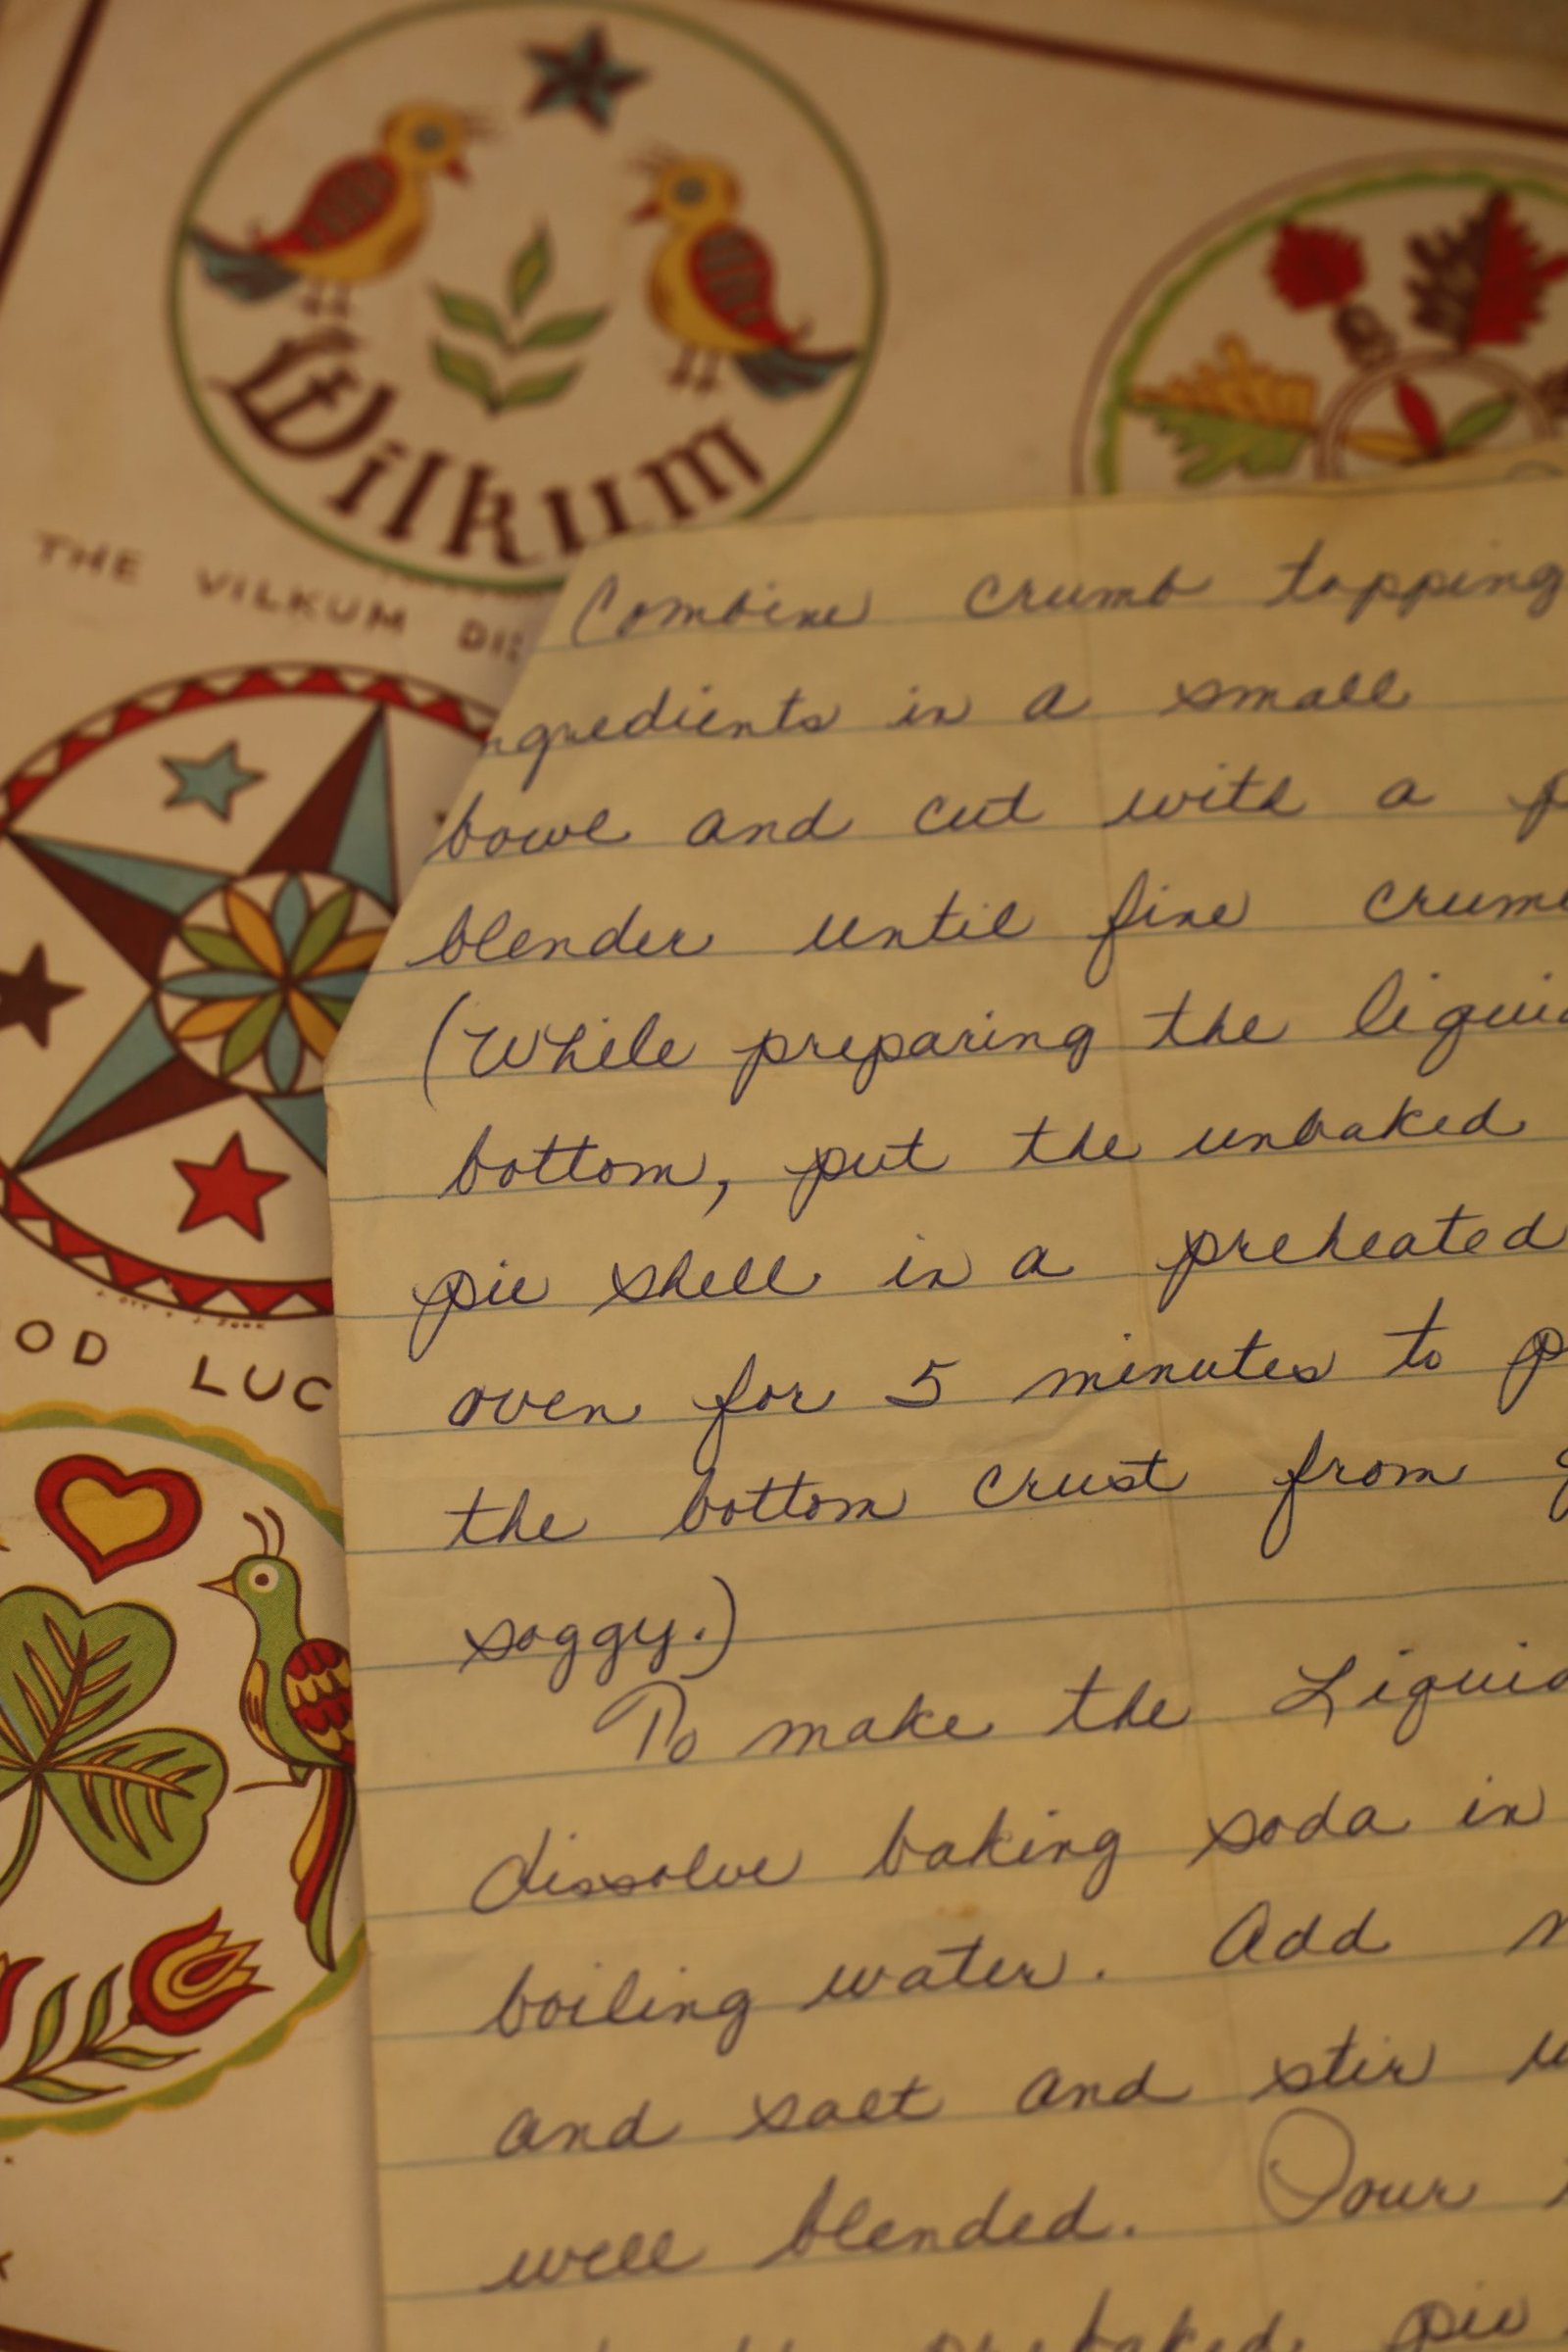 Wilkum
THE VILKUM
OD LUC
Combine crumb topping
ngredients in a small
bowl and cut with a p
blender until fine crum
(While preparing the liqui
bottom, put the unbaked
pie shell in a preheated
oven for 5 minutes to p
the bottom crust from g
soggy.)
To make the Liqui
dissolve baking soda in
boiling water. Add
and salt and stir
well blended. Pour
pie